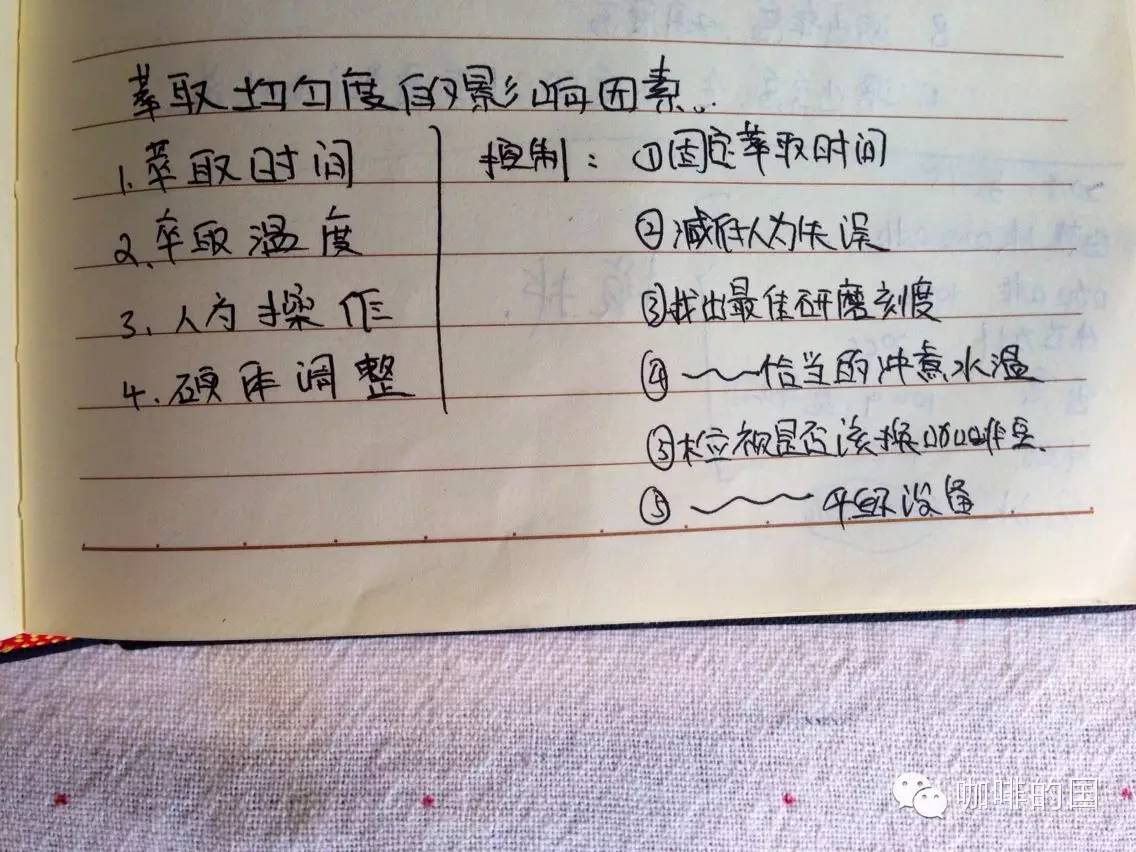 萃取均匀度的影响因素...
1.萃取时间
2.萃取温度
3.人为操作
4.硬体调整
控制：①固定萃取时间
②减低人为失误
③找出最佳研磨刻度
④~~恰当的冲煮水温
⑤检视是否该换咖啡豆.
⑤~~~冲煮设备
咖啡的国